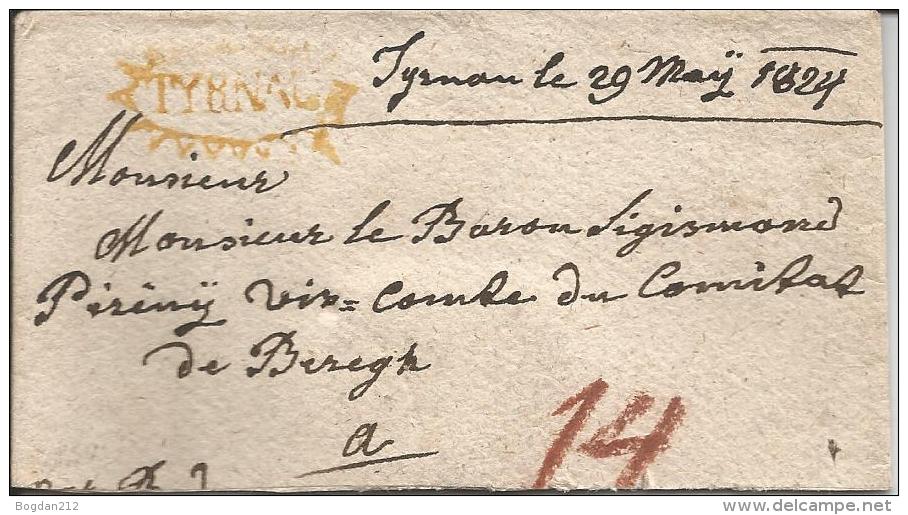 TYRNAU
Tyrnau le 29 Maÿ 1824
Monsieur
Monsieur le Baron Sigismond
Pérényÿ vix=comte du Comitat
de Beregh
a
14
Bogdan212
www.delcampe.net